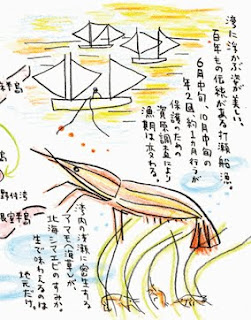 湾に浮かぶ姿が美しい、
百年もの伝統がある打瀬船漁。
6月中旬、10月中旬の
年2回約1カ月行うが
保護のための
資源調査により
漁期は変わる。
野付湾
湾内の浅瀬に密生する
アマモ(海草)が
北海シマエビのすみか。
生で味わえるのは
地元だけ。